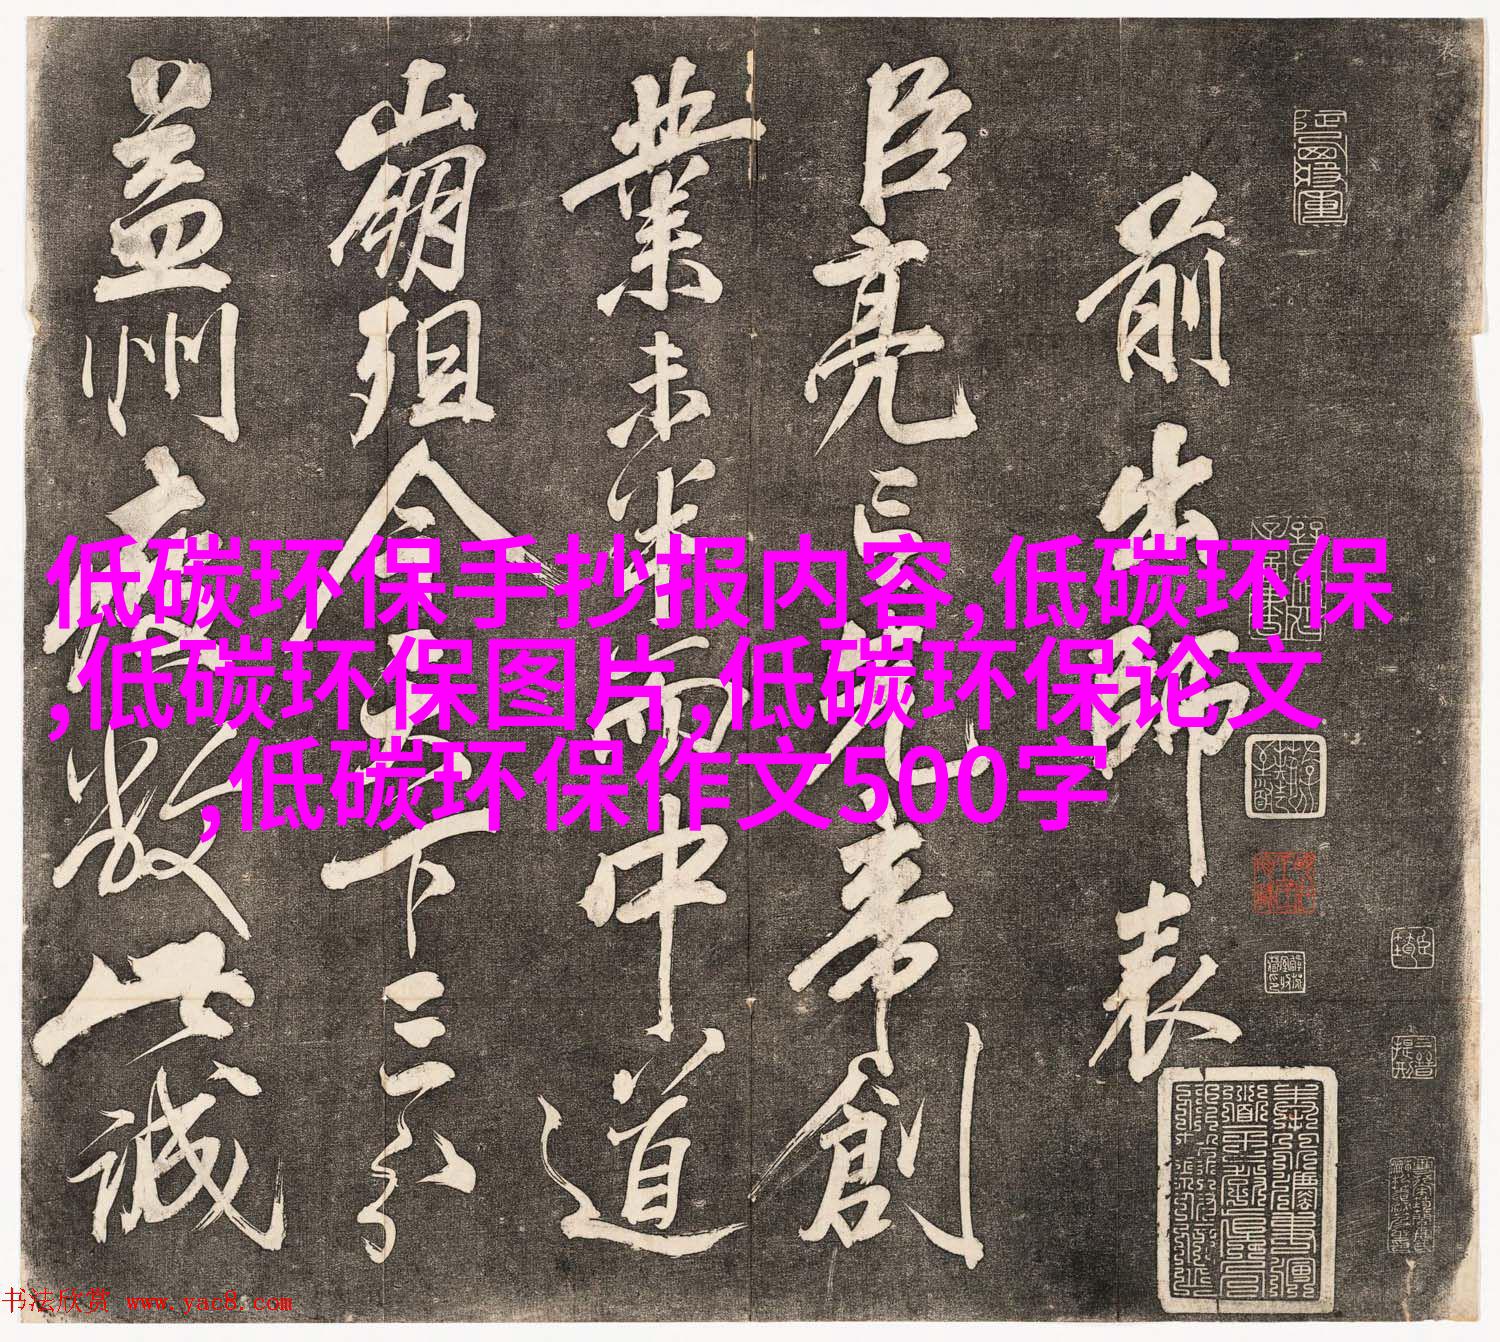 前出師表
臣亮言先帝創
業未半而中道
崩殂今天下三分
益州疲敝此誠
低碳环保手抄报内容,低碳环保
,低碳环保图片,低碳环保论文
,低碳环保作文500字
书法欣赏 www.yac8.com